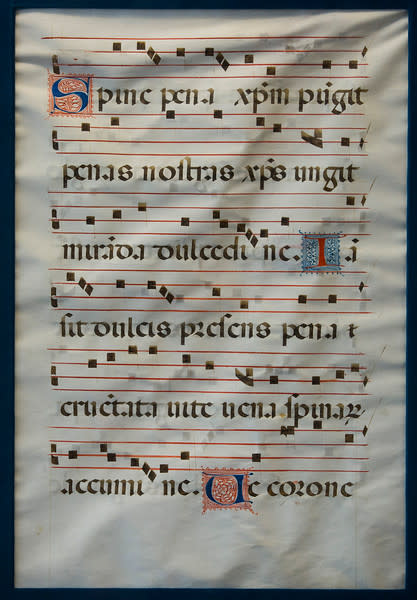 Spine pena xp̄m pūgit
penas nostras xp̄s ungit
mirāda dulcedi ne. Iā
sit dulcis presens pena ⁊
eructata uite uena spinaꝝ
accumi ne. Ue corone